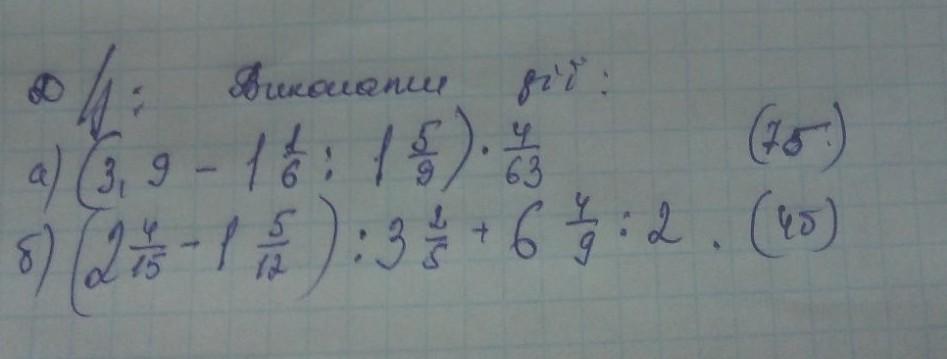 Д/з: Виконати дії:
а) (3,9 - 1 1/6 : 1 5/9) · 4/63 (7б.)
б) (2 4/15 - 1 5/12) : 3 2/5 + 6 4/9 : 2. (4б)